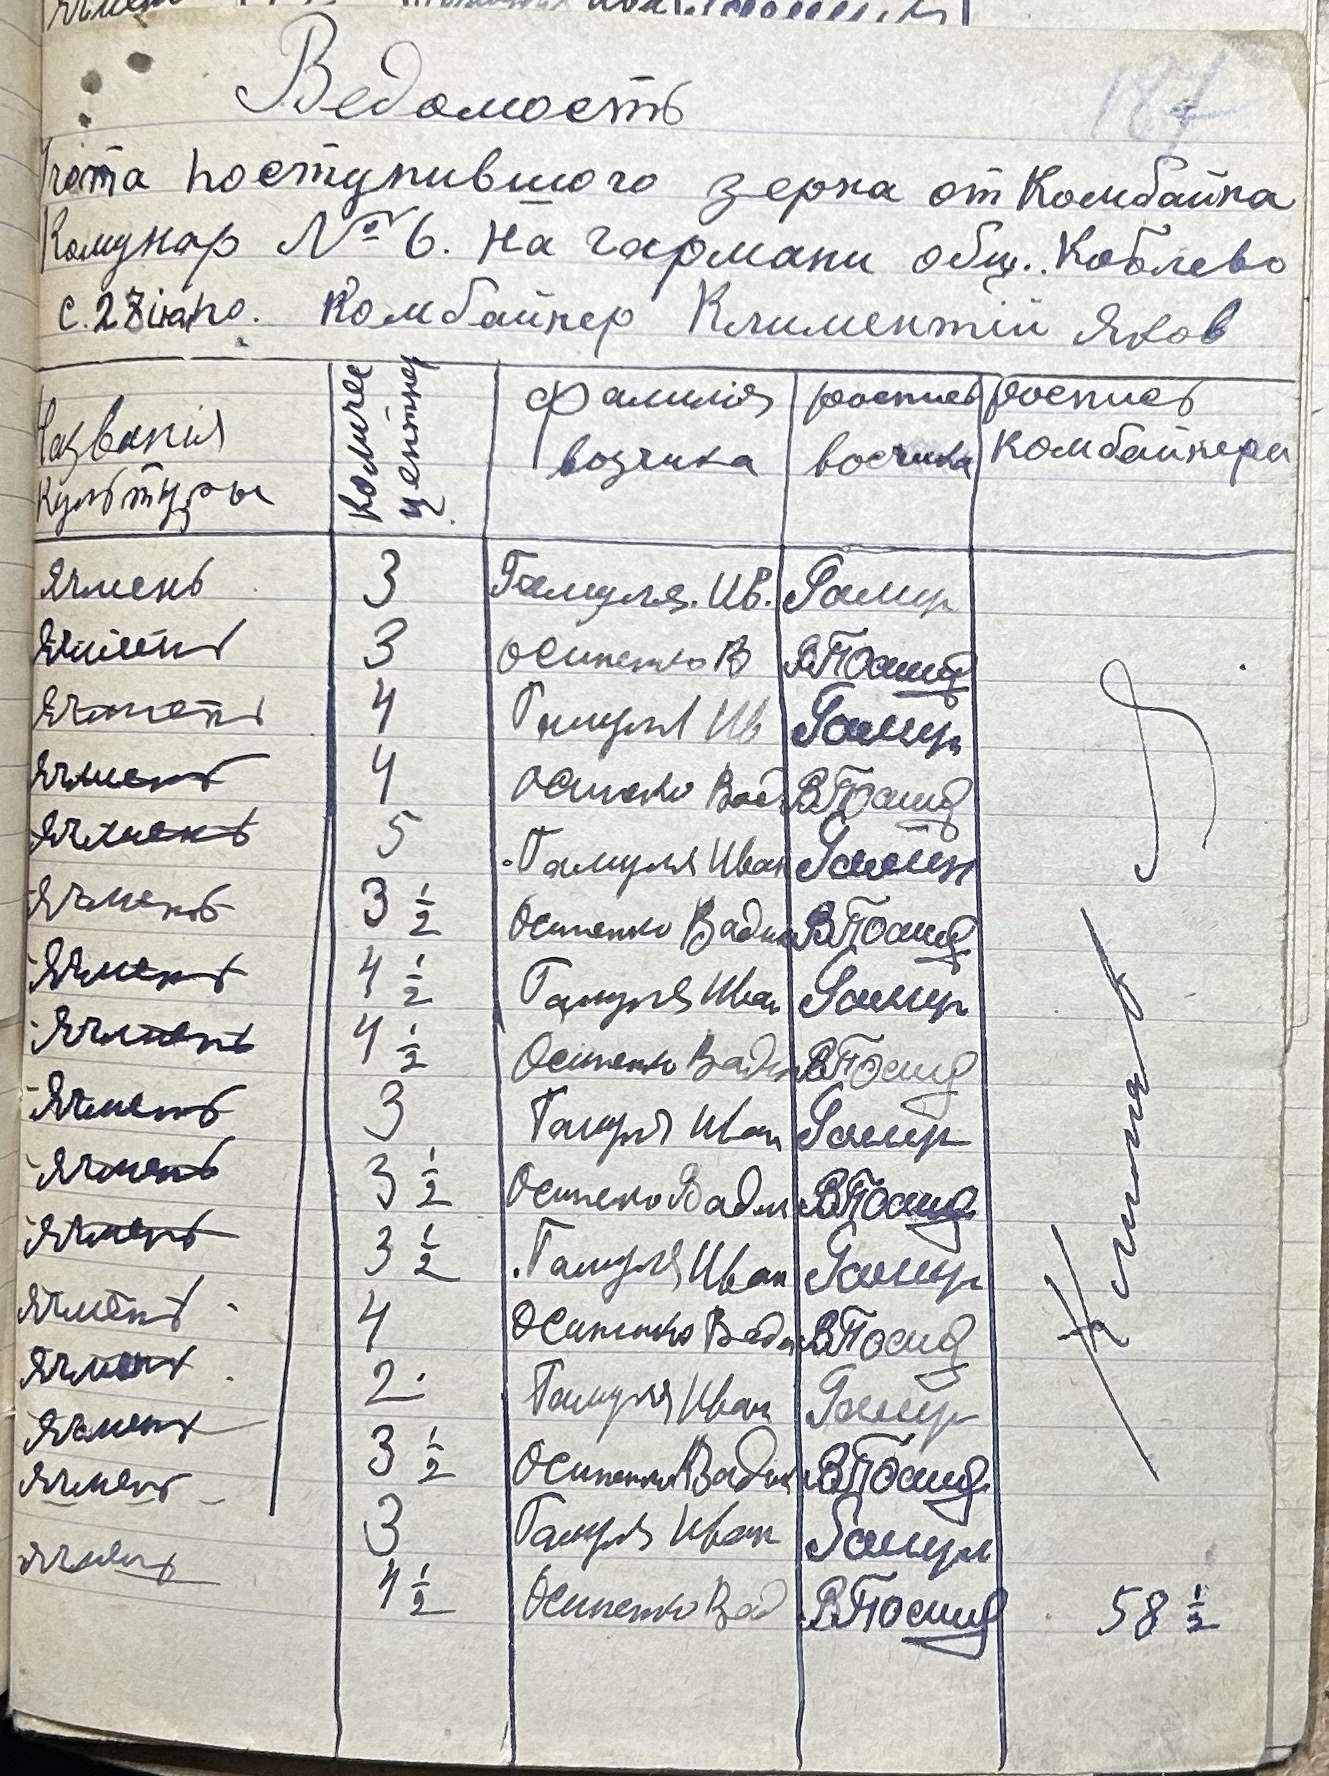 187
Ведомость
Учота поступившого зерна от Комбайна
Комунар № 6. На гармани общ.. Коблево
с. 28 іюно. Комбайнер Климентій Яков
Названія культуры Количес центнер фамилія возчика роспись восчика роспись комбайнера
Ячмень 3 Гамуля. Ив. Гамур
Ячмень 3 Осипенко В
Ячмень 4 Гамуля Ив Гамур
Ячмень 4 Осипеко Вад
Ячмень 5 Гамуля Иван Гамур
Ячмень 3 1/2 Осипенко Вадим
Ячмень 4 1/2 Гамуля Иван Гамур
Ячмень 4 1/2 Осипенко Вадим
Ячмень 3 Гамуля Иван Гамур
Ячмень 3 1/2 Осипенко Вадим
Ячмень 3 1/2 Гамуля Иван Гамур
Ячмень 4 Осипенко Вадим
Ячмень 2 Гамуля Иван Гамур
Ячмень 3 1/2 Осипенко Вадим
Ячмень 3 Гамуля Иван Гамур
Ячмень 4 1/2 Осипенко Вад 58 1/2